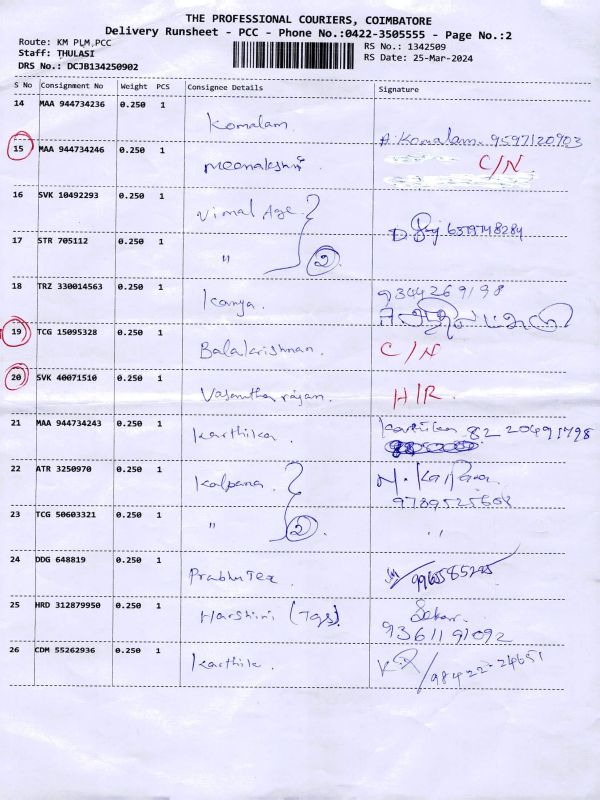 THE PROFESSIONAL COURIERS, COIMBATORE
Delivery Runsheet - PCC - Phone No.:0422-3505555 - Page No.:2
Route: KM PLM,PCC
RS No.: 1342509
Staff: THULASI
RS Date: 25-Mar-2024
DRS No.: DCJB134250902
S No Consignment No Weight PCS Consignee Details Signature
14 MAA 944734236 0.250 1 Komalam A. Komalam 9597120903
15 MAA 944734246 0.250 1 Meenakshi C/N
16 SVK 10492293 0.250 1 Vimal Age
17 STR 705112 0.250 1 " 2
18 TRZ 330014563 0.250 1 Kanya 9344269198
19 TCG 15095328 0.250 1 Balakrishnan C/N
20 SVK 40071510 0.250 1 Vasantha rajan H/R
21 MAA 944734243 0.250 1 Karthika Karthika 82 20491798
22 ATR 3250970 0.250 1 Kalpana N. Kalpana
23 TCG 50603321 0.250 1 " 2 "
24 DDG 648819 0.250 1 Prabhu Tex
25 HRD 312879950 0.250 1 Harshini (Tgs) Sekar 9361191092
26 CDM 55262936 0.250 1 Karthik 98422-24651